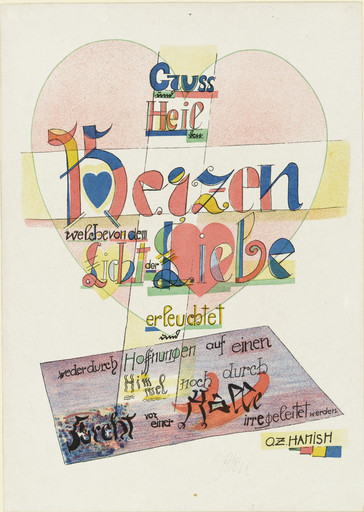 Gruss
und
Heil
den
Herzen
welche von dem
Licht der Liebe
erleuchtet
und
weder durch Hoffnungen auf einen
Him
mel noch durch
Furcht vor einer Hölle irregeleitet werden
O.Z. HANISH